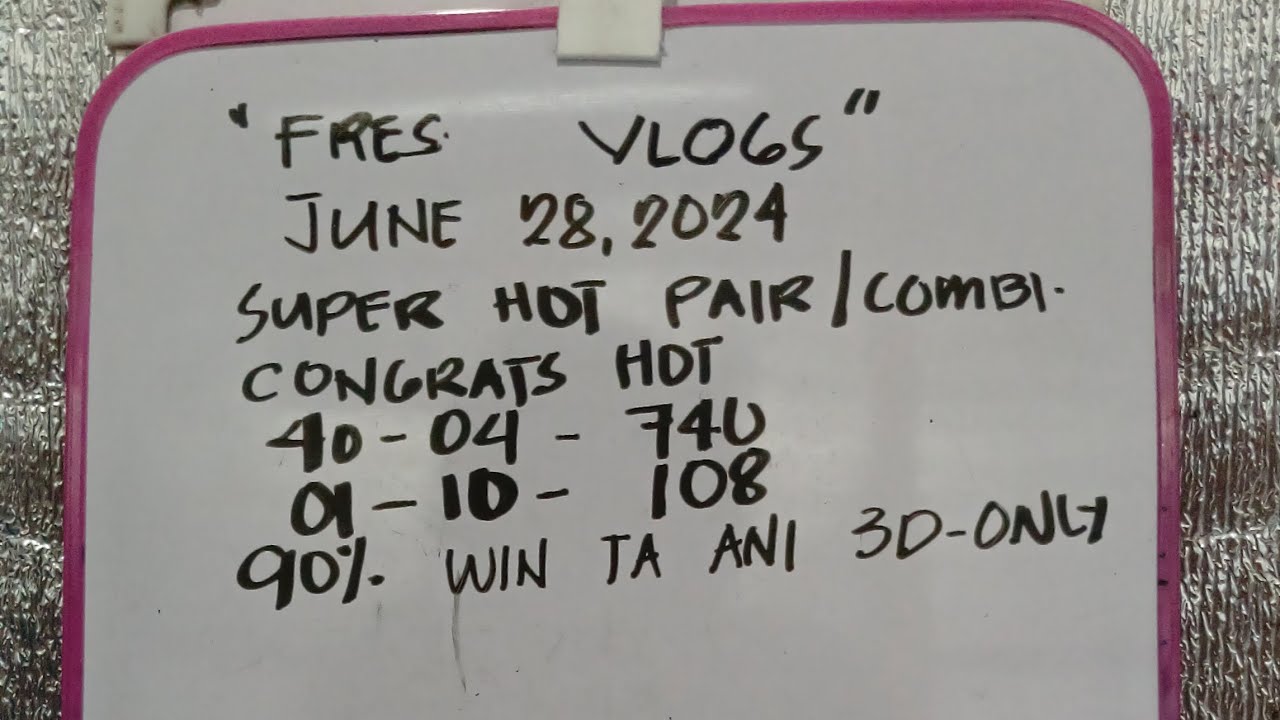 "FRES. VLOGS"
JUNE 28, 2024
SUPER HOT PAIR/COMBI.
CONGRATS HOT
40-04 - 740
01-10- 108
90% WIN TA ANI 3D-ONLY